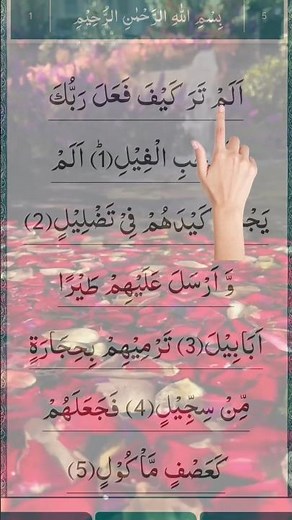 1 بِسْمِ اللهِ الرَّحْمٰنِ الرَّحِيْمِ 5
اَلَمْ تَرَ كَيْفَ فَعَلَ رَبُّكَ
الْفِيْلِ(1) اَلَمْ
كَيْدَهُمْ فِيْ تَضْلِيْلٍ(2)
وَّ اَرْسَلَ عَلَيْهِمْ طَيْرًا
اَبَابِيْلَ(3) تَرْمِيْهِمْ بِحِجَارَةٍ
مِّنْ سِجِّيْلٍ(4) فَجَعَلَهُمْ
كَعَصْفٍ مَّاْكُوْلٍ(5)